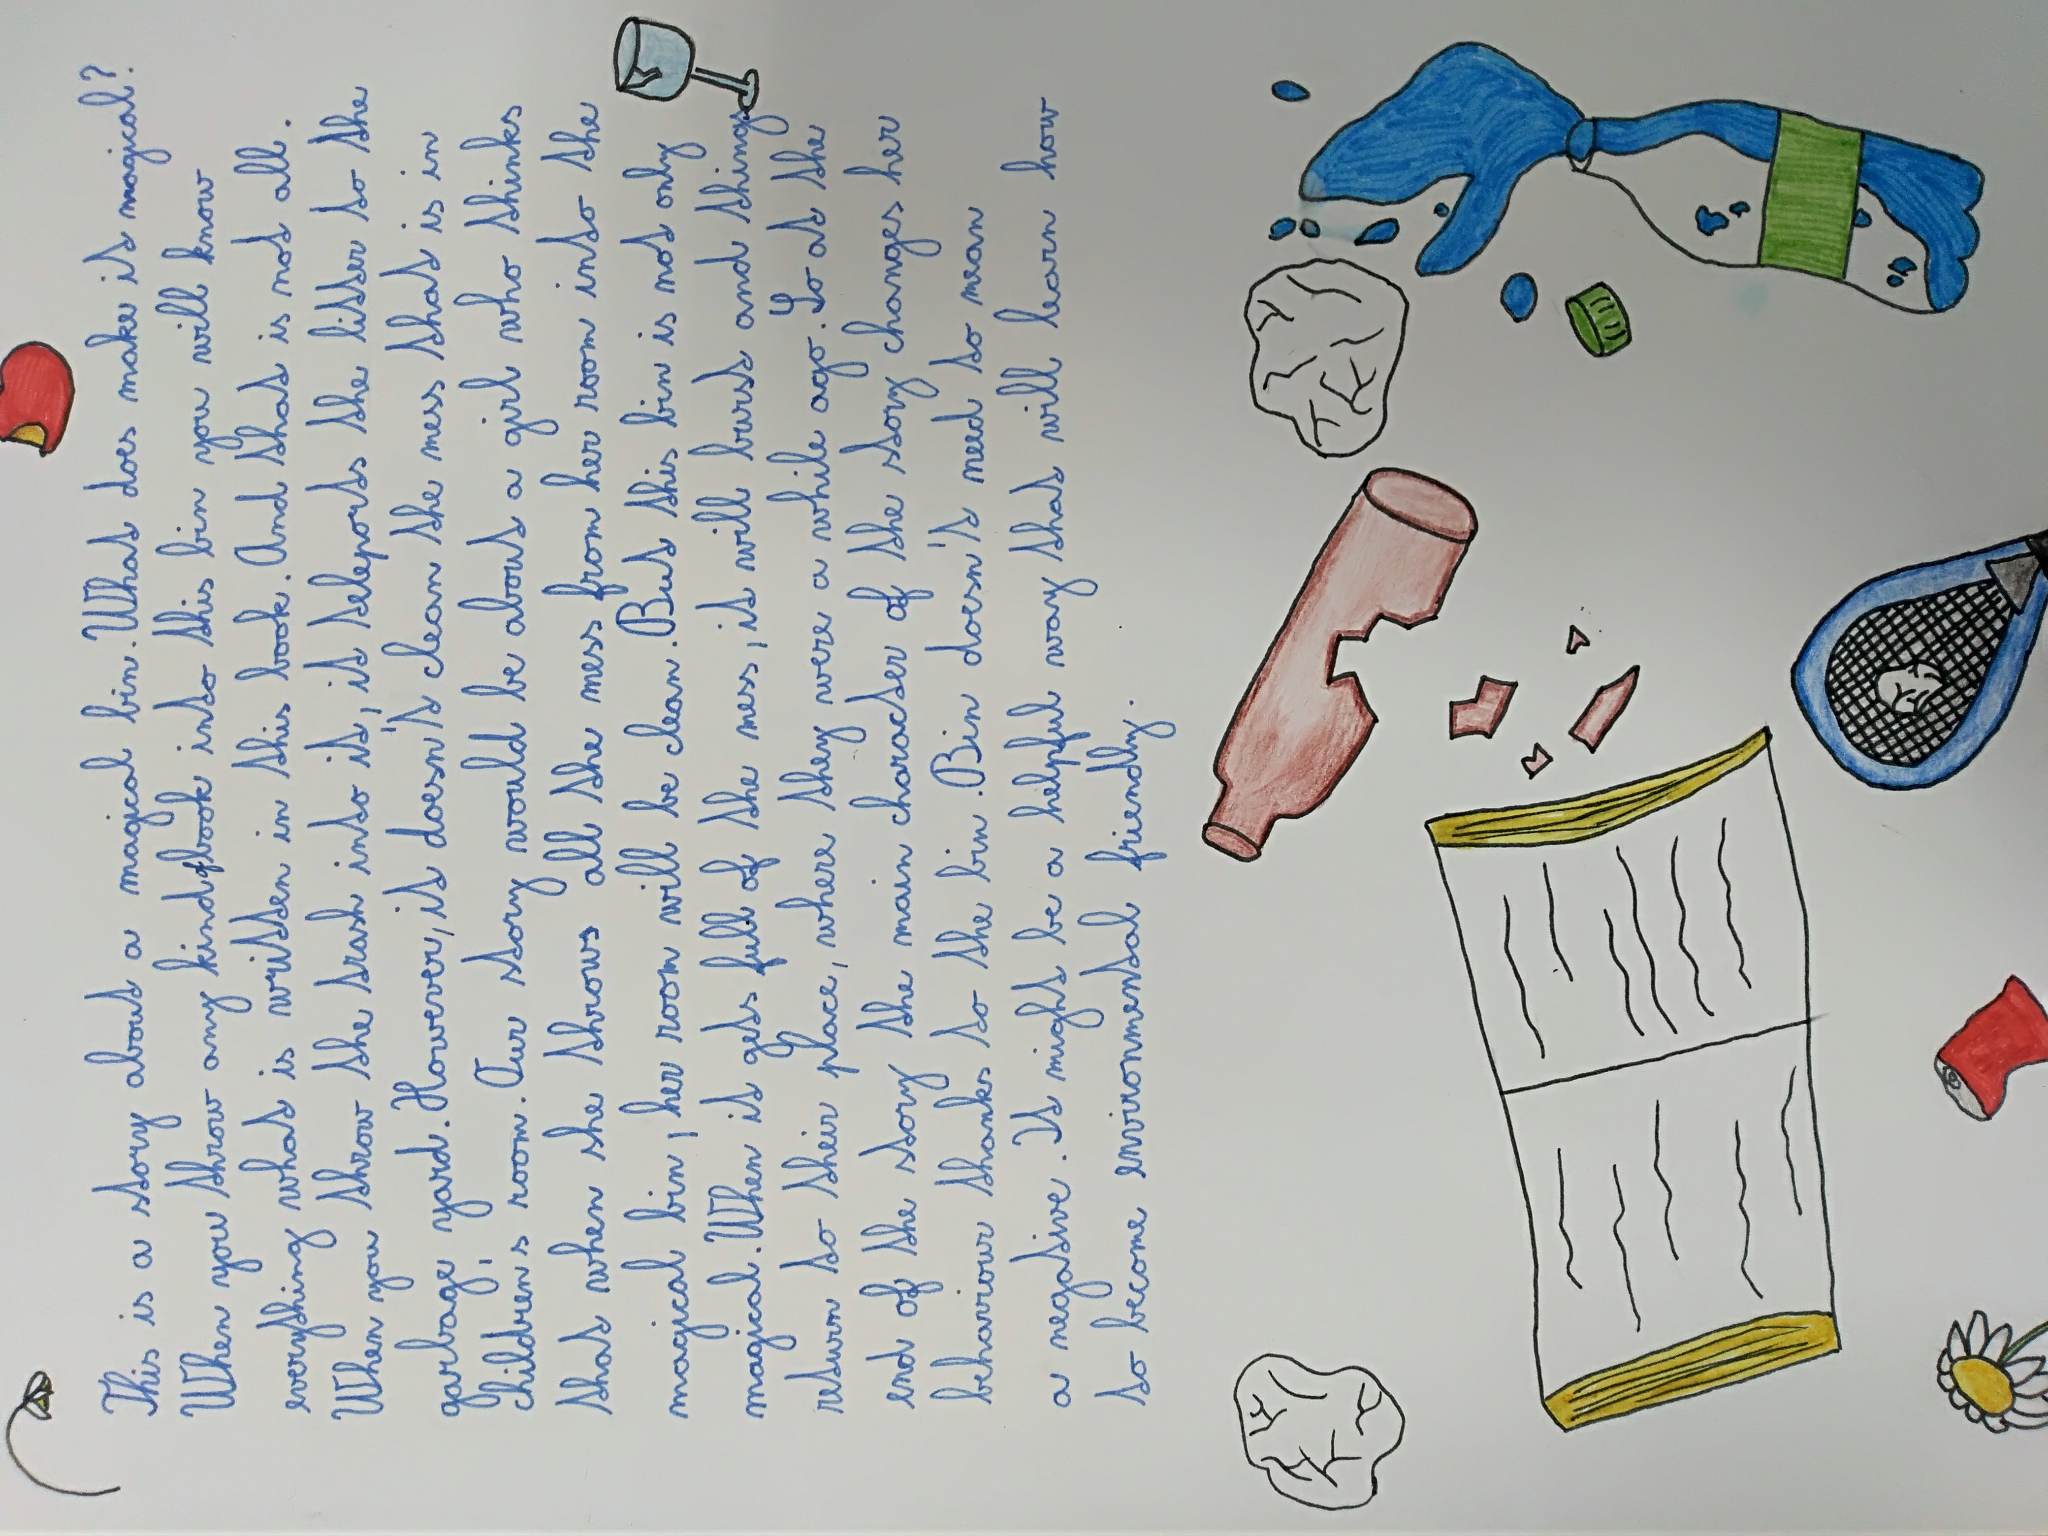 This is a story about a magical bin. What does make it magical?
When you throw any kind of book into this bin you will know
everything what is written in this book. And that is not all.
When you throw the trash into it, it teleports the litter to the
garbage yard. However, it doesn't clean the mess that is in
children's room. Our story would be about a girl who thinks
that when she throws all the mess from her room into the
magical bin, her room will be clean. But this bin is not only
magical. When it gets full of the mess, it will burst and things
return to their place, where they were a while ago. So at the
end of the story the main character of the story changes her
behaviour thanks to the bin. Bin doesn't need to mean
a negative. It might be a helpful way that will learn how
to become environmental friendly.